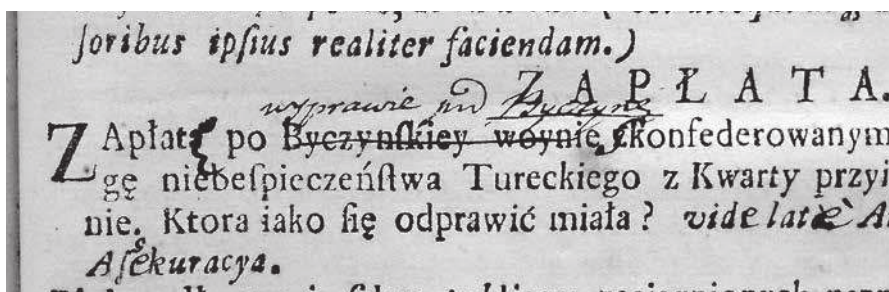 ſoribus ipſius realiter faciendam.)
ZAPŁATA.
wyprawie pod Byczynę
ZApłatę po Byczynſkiey woynie, ſkonfederowanym
gę niebeſpieczeńſtwa Tureckiego z Kwarty przyi
nie. Ktora iako ſię odprawić miała? vide latè A
Aſekuracya.